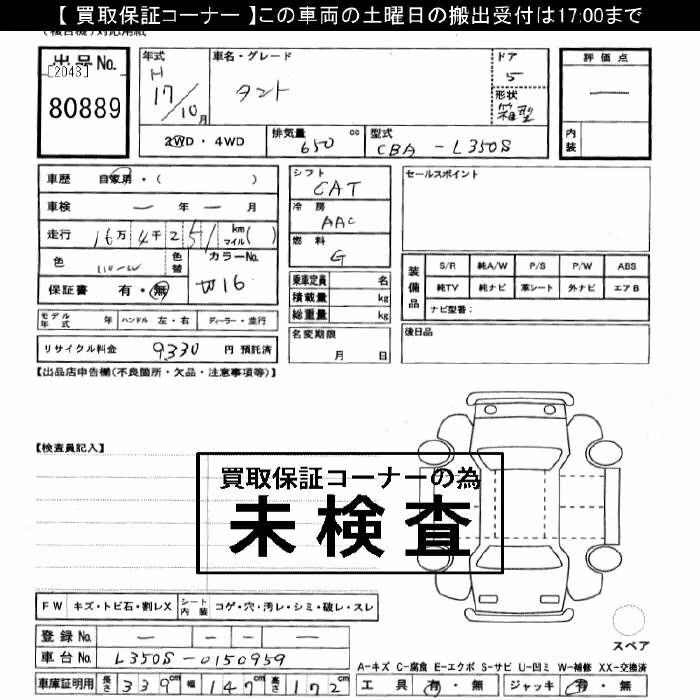 【 買取保証コーナー 】この車両の土曜日の搬出受付は17:00まで
出品No.
[2043]
80889
年式
H
17/10月
車名・グレード
タント
ドア
5
形状
箱型
評価点
―
内装
2WD・4WD
排気量 650 cc
型式 CBA - L350S
車歴 自家用・( )
車検 ― 年 ― 月
走行 16万4千251 km マイル( )
色
色替
カラーNo.
W16
保証書 有・無
モデル年式 年 ハンドル 左・右 ディーラー・並行
リサイクル料金 9330 円 預託済
シフト
CAT
冷房
AAC
燃料
G
乗車定員 名
積載量 kg
総重量 kg
名変期限
月 日
セールスポイント
装備品
S/R 純A/W P/S P/W ABS
純TV 純ナビ 革シート 外ナビ エアB
ナビ型番:
後日品
【出品店申告欄(不良箇所・欠品・注意事項等)】
【検査員記入】
買取保証コーナーの為
未検査
FW キズ・トビ石・割レX シート内装 コゲ・穴・汚レ・シミ・破レ・スレ
登録No. ― ― ―
車台No. L350S-0150959
車庫証明用 長さ 339cm 幅 147cm 高さ 172cm
スペア
A-キズ C-腐食 E-エクボ S-サビ U-凹ミ W-補修 XX-交換済
工具 有・無 ジャッキ 有・無